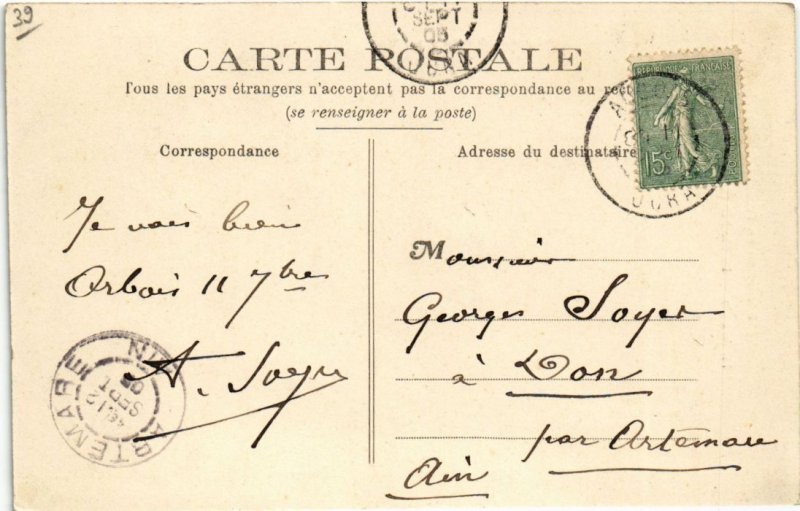 39
SEPT
05
JURA
CARTE POSTALE
Tous les pays étrangers n'acceptent pas la correspondance au recto
(se renseigner à la poste)
REPUBLIQUE FRANÇAISE
15c
JURA
Correspondance
Adresse du destinataire
Je vais bien
Arbois 11 7bre
A. Soyer
Monsieur
Georges Soyer
à Don
par Artemare
Ain
ARTEMARE AIN
12
SEPT
05